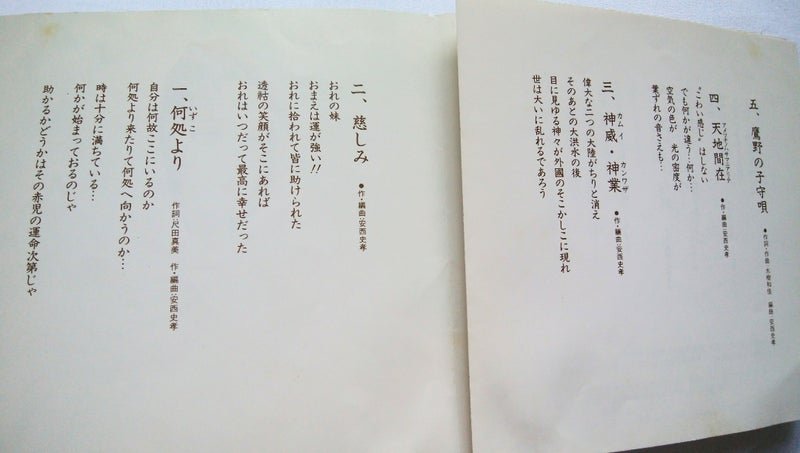 五、鷹野の子守唄
●作詞・作曲:水樹和佳 編曲:安西史孝
四、天地間在
●作・編曲:安西史孝
“こわい感じ”はしない
でも何かが違う…何か…
空気の色が 光の密度が
葉ずれの音さえも…
カムイ カンワザ
三、神威・神業
●作・編曲:安西史孝
偉大な二つの大陸がちりと消え
そのあとの大洪水の後
目に見ゆる神々が外國のそこかしこに現れ
世は大いに乱れるであろう
二、慈しみ
●作・編曲:安西史孝
おれの妹
おまえは運が強い!!
おれに拾われて皆に助けられた
透祜の笑顔がそこにあれば
おれはいつだって最高に幸せだった
いずこ
一、何処より
作詞:尺田真美 作・編曲:安西史孝
自分は何故ここにいるのか
何処より来たりて何処へ向かうのか…
時は十分に満ちている…
何かが始まっておるのじゃ
助かるかどうかはその赤児の運命次第じゃ